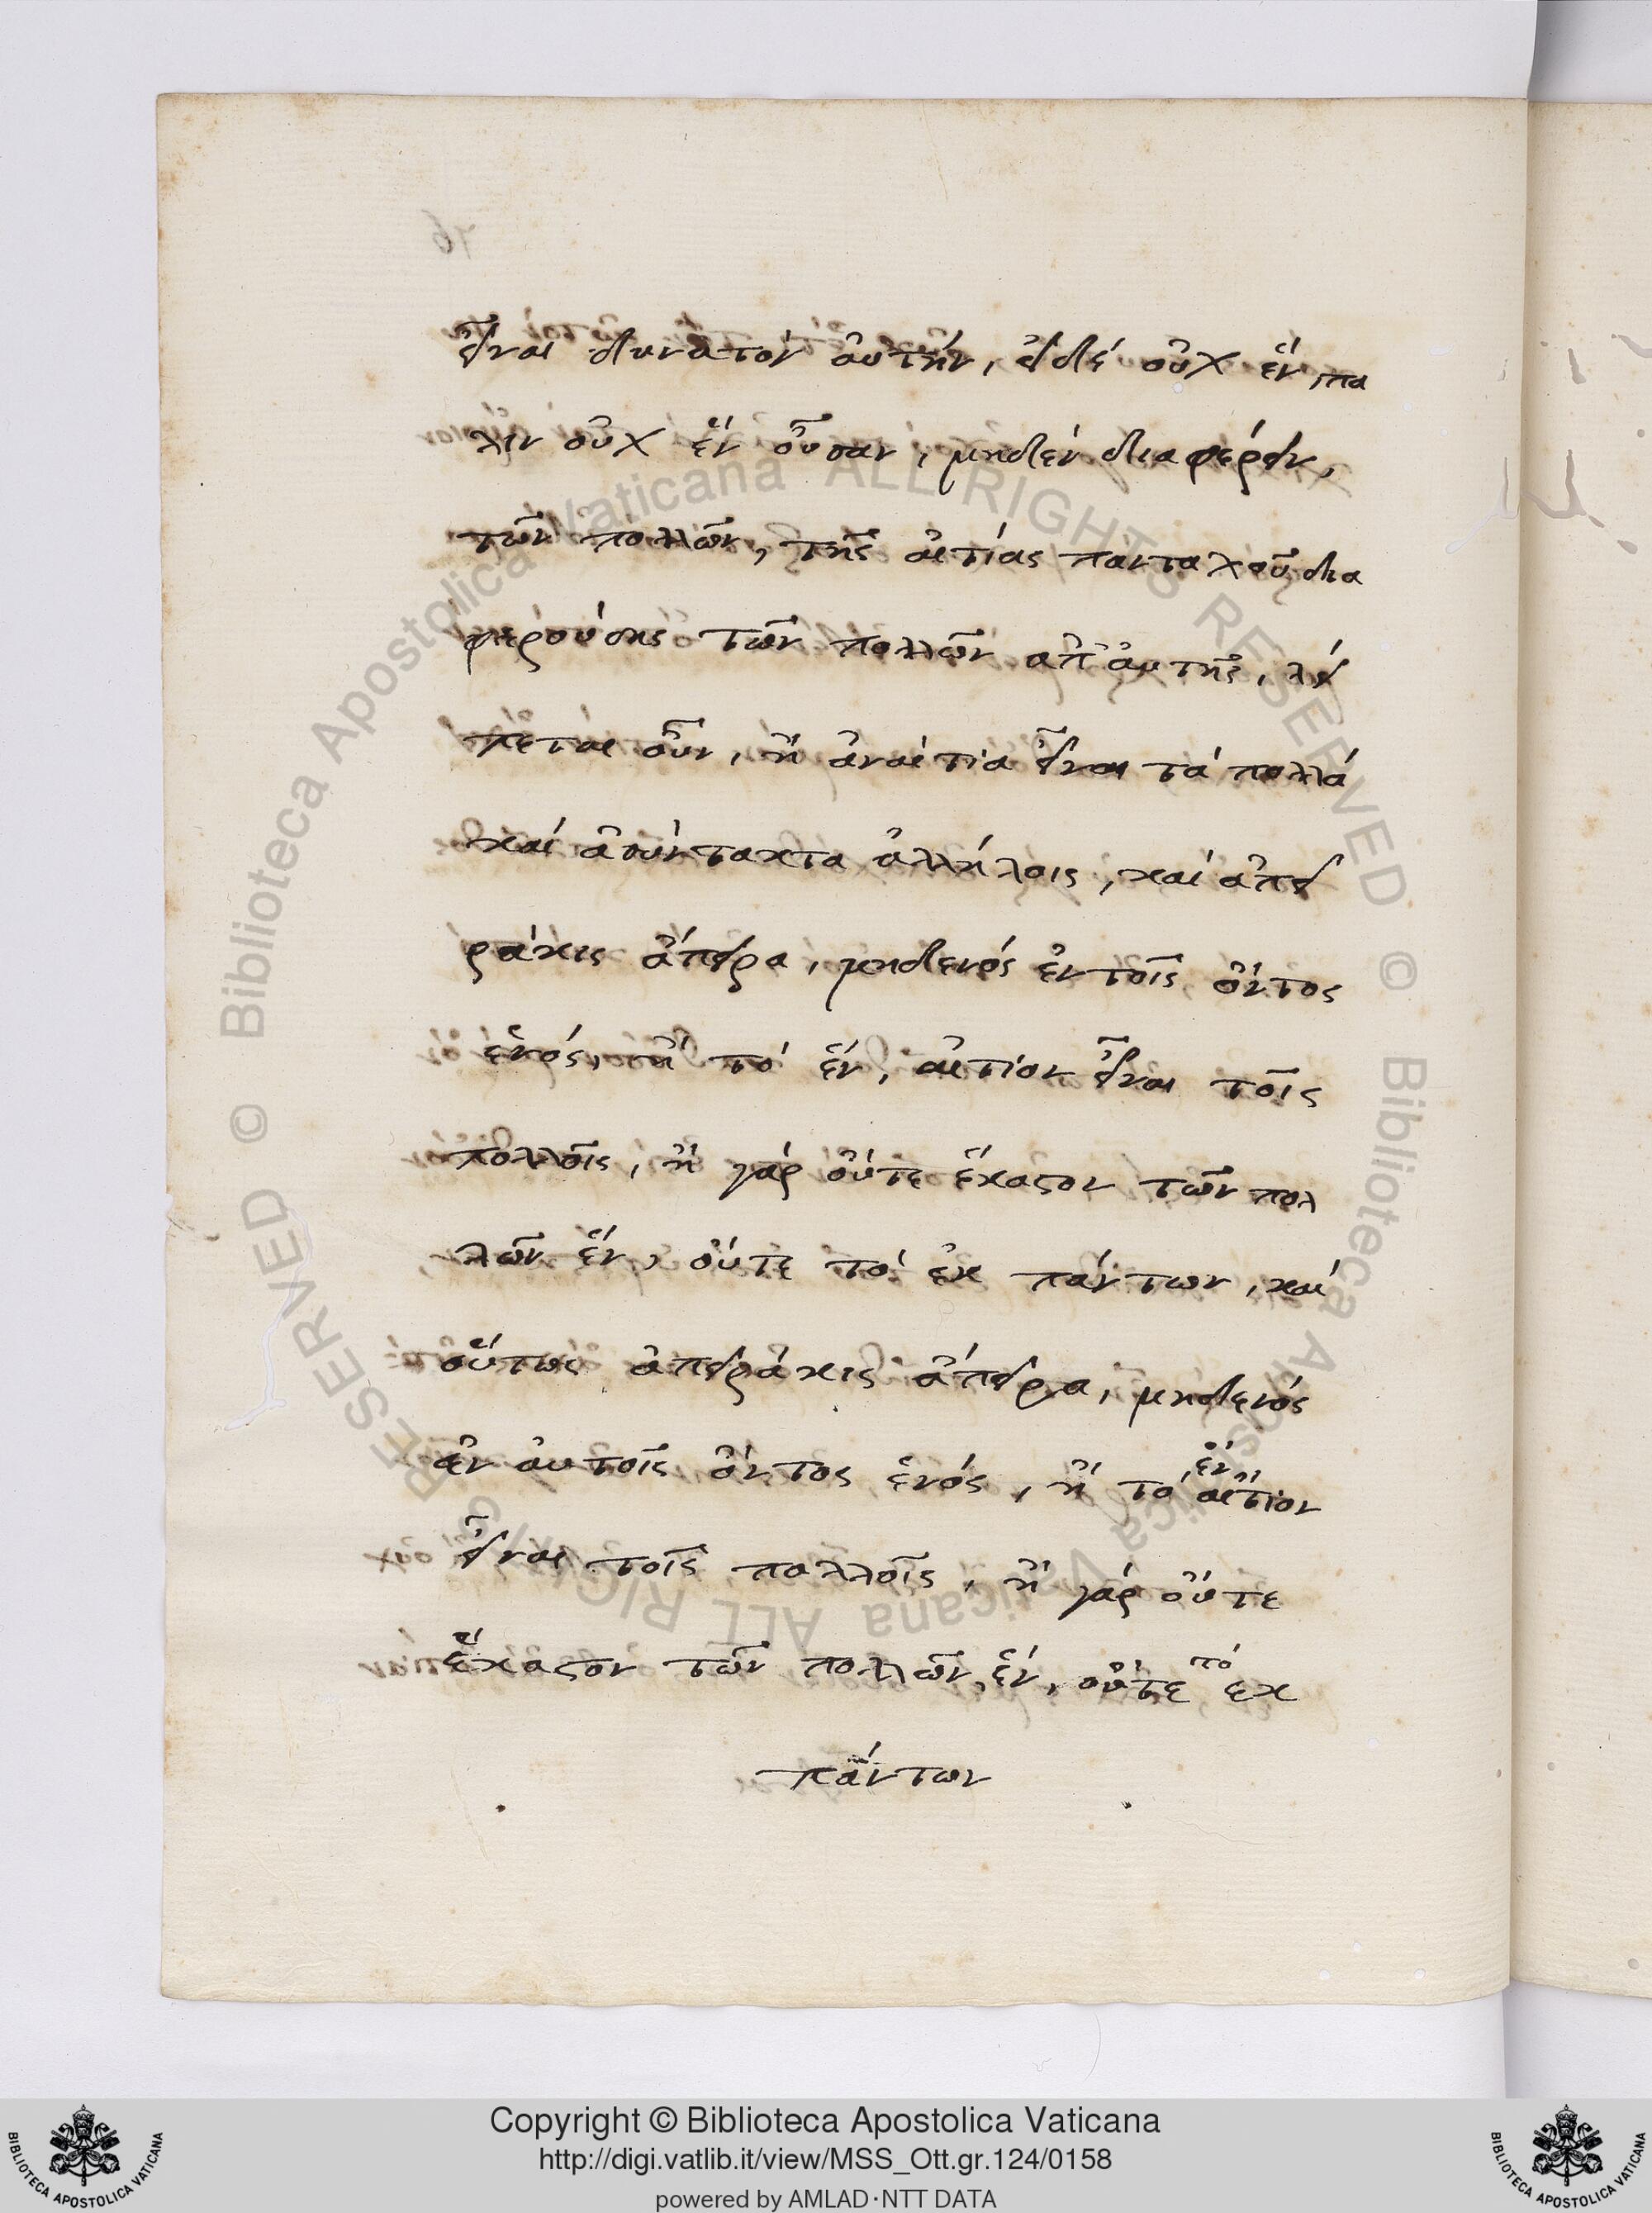 εἶναι δυνατὸν αὐτὴν, εἰδὲ οὐχ ἓν, πα
λιν οὐχ ἓν οὖσαν, μηδὲν διαφέρειν,
τῶν πολλῶν, τῆς αἰτίας πανταχοῦ δια
φερούσης τῶν πολλῶν ἀπ' αὐτῆς, λεί
πεται οὖν, ἢ ἀναίτια εἶναι τὰ πολλὰ
καὶ ἀσύντακτα ἀλλήλοις, καὶ ἀπει
ράκις ἄπειρα, μηδενὸς ἐν τοῖς ὄντος
ἑνὸς, ἢ τὸ ἓν, αἴτιον εἶναι τοῖς
πολλοῖς, ἢ γὰρ οὔτε ἕκαστον τῶν πολ
λῶν ἓν, οὔτε τὸ ἐκ πάντων, καὶ
οὕτως ἀπειράκις ἄπειρα, μηδενὸς
ἐν αὐτοῖς ὄντος ἑνὸς, ἢ τὸ ἓν αἴτιον
εἶναι τοῖς πολλοῖς, ἢ γὰρ οὔτε
ἕκαστον τῶν πολλῶν, ἓν, οὔτε τὸ ἐκ
πάντων
76
Copyright © Biblioteca Apostolica Vaticana
http://digi.vatlib.it/view/MSS_Ott.gr.124/0158
powered by AMLAD·NTT DATA
BIBLIOTECA APOSTOLICA VATICANA
BIBLIOTECA APOSTOLICA VATICANA
© Biblioteca Apostolica Vaticana ALL RIGHTS RESERVED © Biblioteca Apostolica Vaticana ALL RIGHTS RESERVED